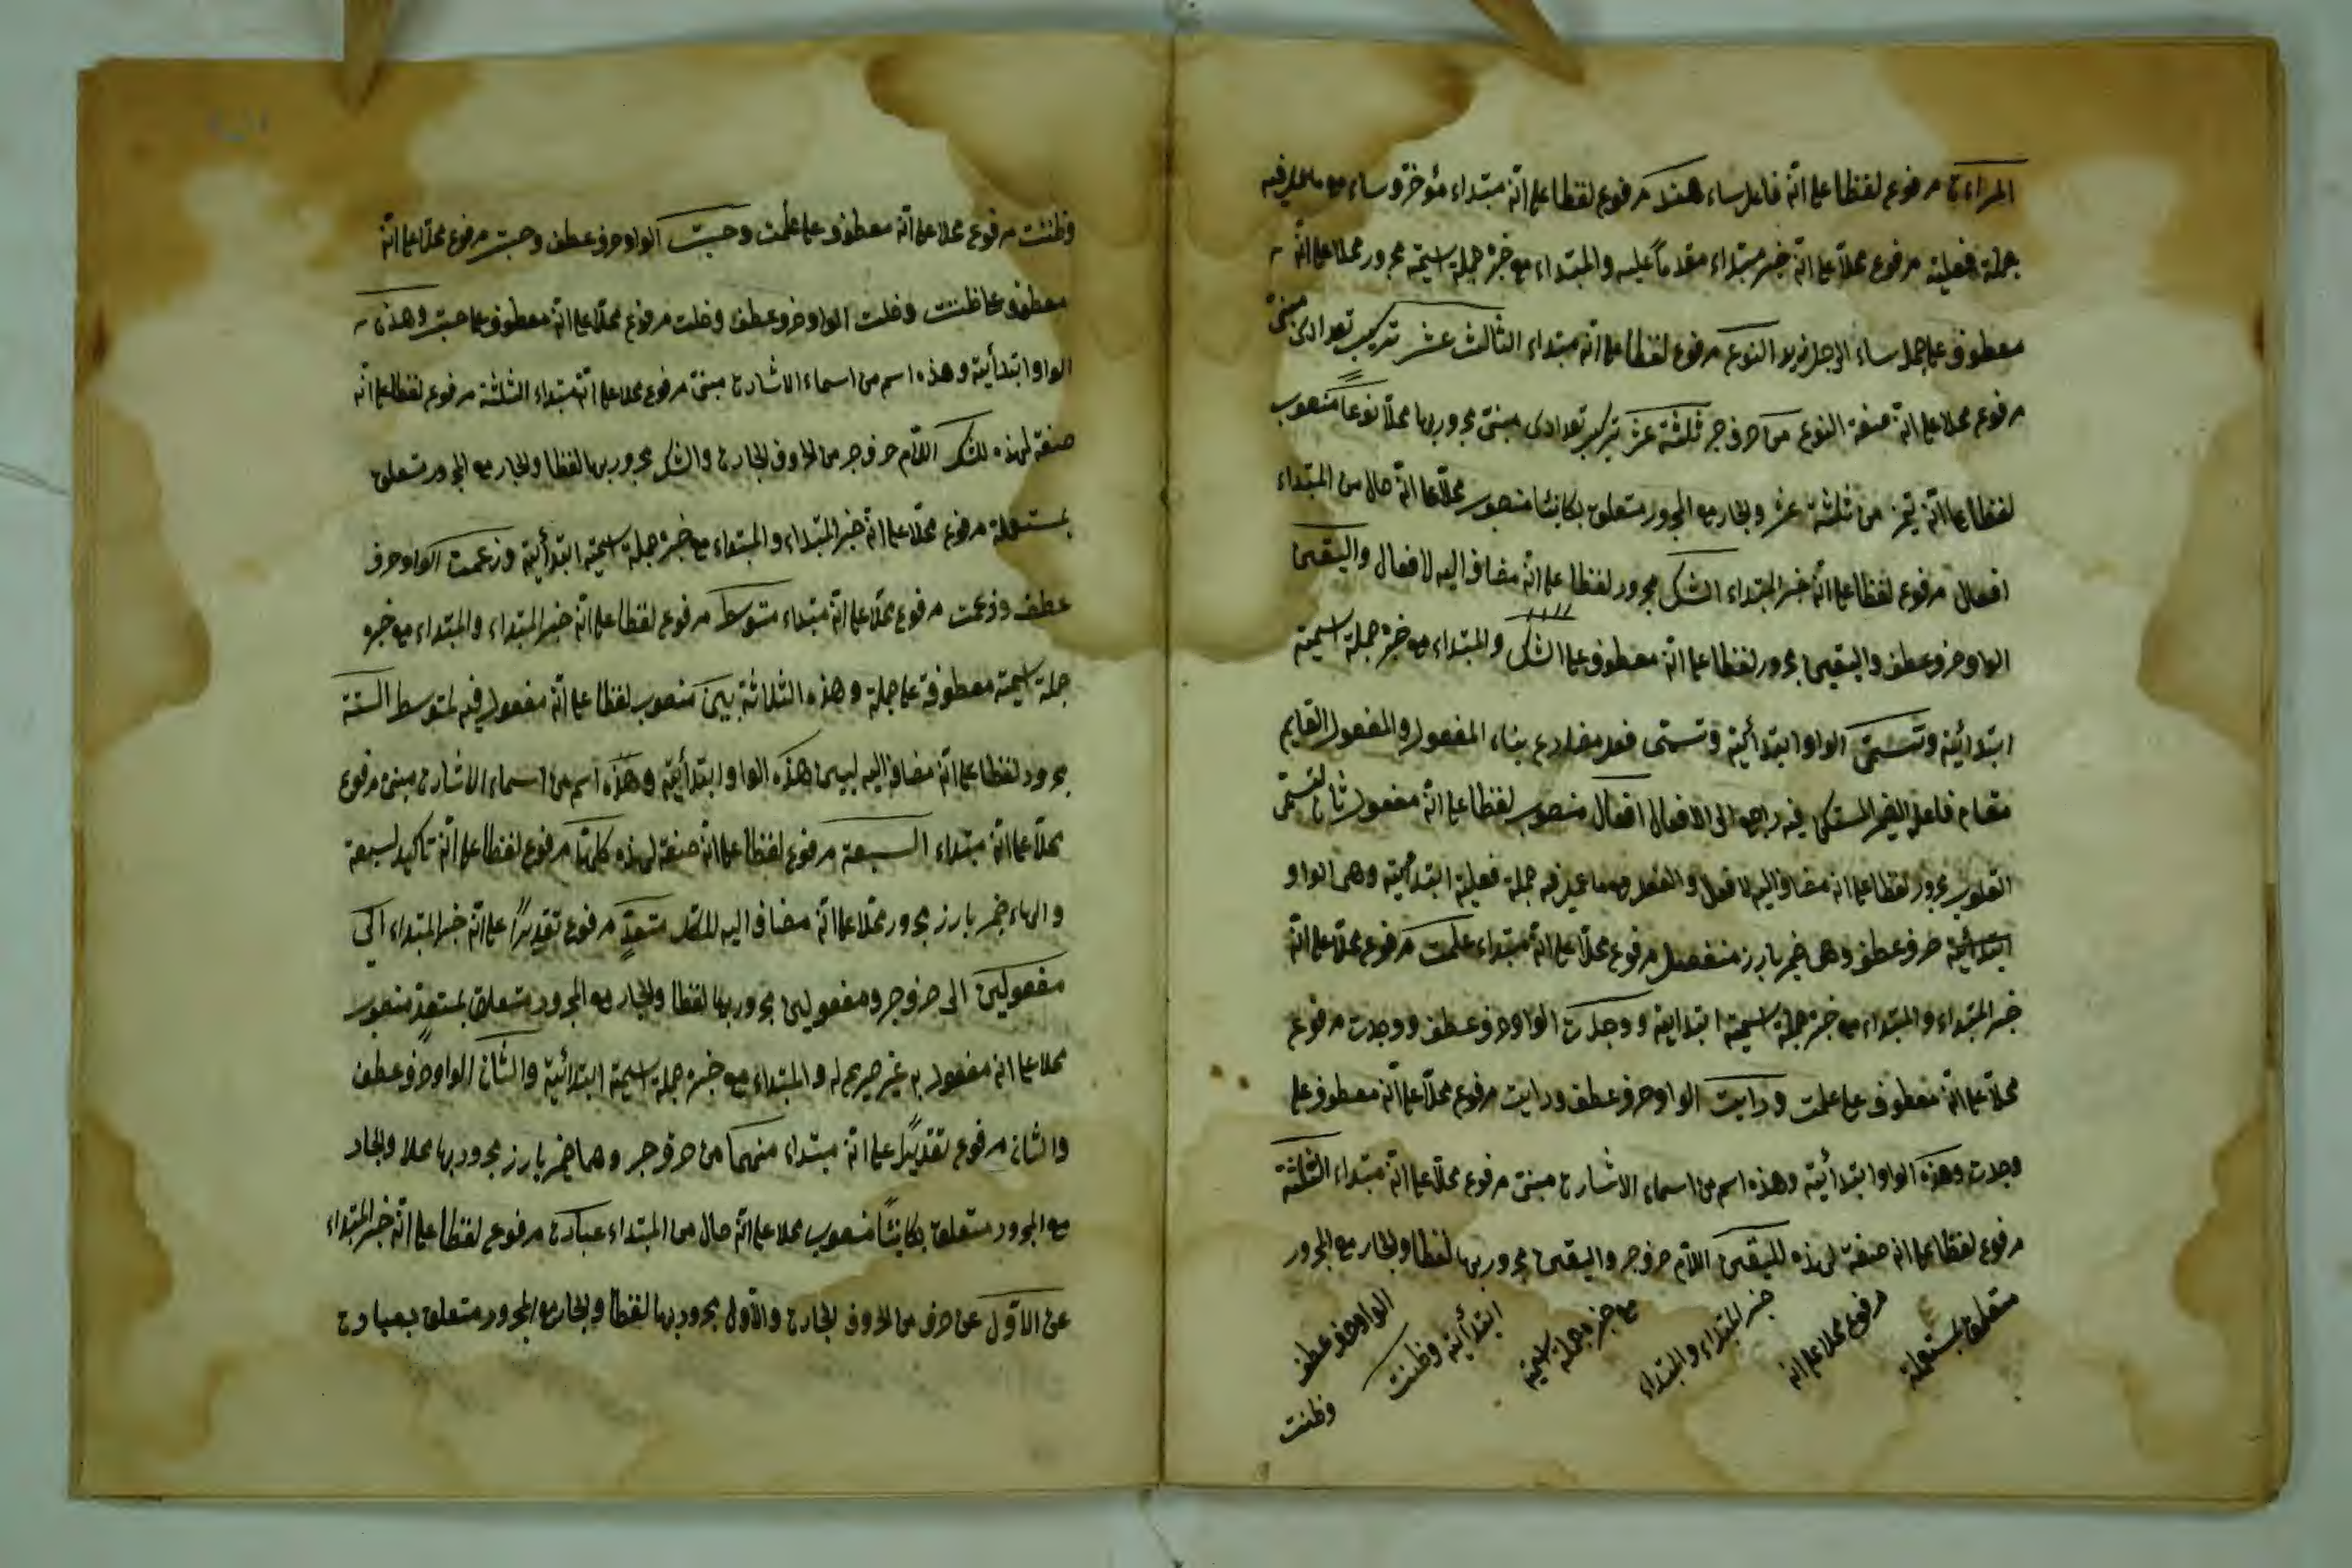 المراءة مرفوع لفظا على انّه فاعل ساء هند مرفوع لفظا على انّه مبتداء مؤخر وساء مع ما عمل فيه
جملة فعلية مرفوع محلّا على انّه خبر مبتداء مقدماً عليه والمبتداء مع خبره جملة اسمية مجرور محلا على انّه
معطوف على جملة ساء الرجل زيد النوع مرفوع لفظا على انّه مبتداء الثالث عشر تركيب تعدادى مبنىّ
مرفوع محلا على انّه صفة النوع من حرف جر ثلثة عشر تركيب تعدادى مبنىّ مجرور بها محلّا نوعاً منصوب
لفظا على انّه تميز من ثلثة عشر والجار مع المجرور متعلق بكائنا منصوب محلّا على انّه حال من المبتداء
افعال مرفوع لفظا على انّه خبر المبتداء الشك مجرور لفظا على انّه مضاف اليه لافعال واليقين
الواو حرف عطف واليقين مجرور لفظا على انّه معطوف على الشك والمبتداء مع خبره جملة اسمية
ابتدائية وتسمّى الواو ابتدائية وتسمّى فعل مضارع بناء المفعول والمفعول القايم
مقام فاعل الضمير المستكن فيه راجع الى الافعال افعال منصوب لفظا على انّه مفعول ثان لتسمّى
القلوب مجرور لفظا على انه مضاف اليه لافعال والفعل مع ما عمل فيه جملة فعلية ابتدائية وهى الواو
ابتدائية حرف عطف وهى ضمير بارز منفصل مرفوع محلّا على انّه مبتداء علمت مرفوع محلّا على انّه
خبر المبتداء والمبتداء مع خبره جملة اسمية ابتدائية ووجدت الواو حرف عطف ووجدت مرفوع
محلّا على انّه معطوف على علمت ورايت الواو حرف عطف ورايت مرفوع محلّا على انّه معطوف على
وجدت وهذه الواو ابتدأية وهذه اسم من اسماء الاشارة مبنى مرفوع محلّا على انّه مبتداء الثلثة
مرفوع لفظا على انه صفة لهذه لليقين اللام حرف جر واليقين مجرور بها لفظا والجار مع المجرور
متعلق بمستعملة
مرفوع محلا على انه
خبر المبتداء والمبتداء
مع خبره جملة اسمية
ابتدأية وظننت
الواو حرف عطف
وظننت
وظننت مرفوع محلا على انّه معطوف على علمت وحسبت الواو حرف عطف وحسبت مرفوع محلّا على انّه
معطوف على ظننت وخلت الواو حرف عطف وخلت مرفوع محلّا على انّه معطوف على حسبت وهذه
الواو ابتدأية وهذه اسم من اسماء الاشارة مبنىّ مرفوع محلا على انّه مبتداء الثلثة مرفوع لفظا على انّه
صفة لهذه للشك اللّام حرف جر من الحروف الجارة والشك مجرور بها لفظا والجار مع المجرور متعلق
بمستعملة مرفوع محلّا على انّه خبر المبتداء والمبتداء مع خبره جملة اسمية ابتدأية وزعمت الواو حرف
عطف وزعمت مرفوع محلّا على انّه مبتداء متوسط مرفوع لفظا على انّه خبر المبتداء والمبتداء مع خبره
جملة اسمية معطوفة على جملة وهذه الثلاثة بين منصوب لفظا على انّه مفعول فيه لمتوسط الستة
مجرور لفظا على انّه مضاف اليه لبين هذه الواو ابتدأية وهذه اسم من اسماء الاشارة مبنى مرفوع
محلّا على انّه مبتداء السبعة مرفوع لفظا على انّه صفة لهذه كلّها مرفوع لفظا على انّه تأكيد لسبعة
والهاء ضمير بارز مجرور محلّا على انّه مضاف اليه للكل متعدٍّ مرفوع تقديراً على انّه خبر المبتداء الى
مفعولين الى حرف جر ومفعولين مجرور بها لفظا والجار مع المجرور متعلق بمتعدٍ منصوب
محلا على انه مفعول به غير صريح له والمبتداء مع خبره جملة اسمية ابتدائية والثان الواو حرف عطف
والثان مرفوع تقديراً على انّه مبتداء منهما من حرف جر وهما ضمير بارز مجرور بها محلا والجار
مع المجرور متعلق بكائناً منصوب محلا على انّه حال من المبتداء عبارة مرفوع لفظا على انّه خبر المبتداء
عن الاوّل عن حرف من الحروف الجارة والاول مجرور بها لفظا والجار مع المجرور متعلق بعبارة